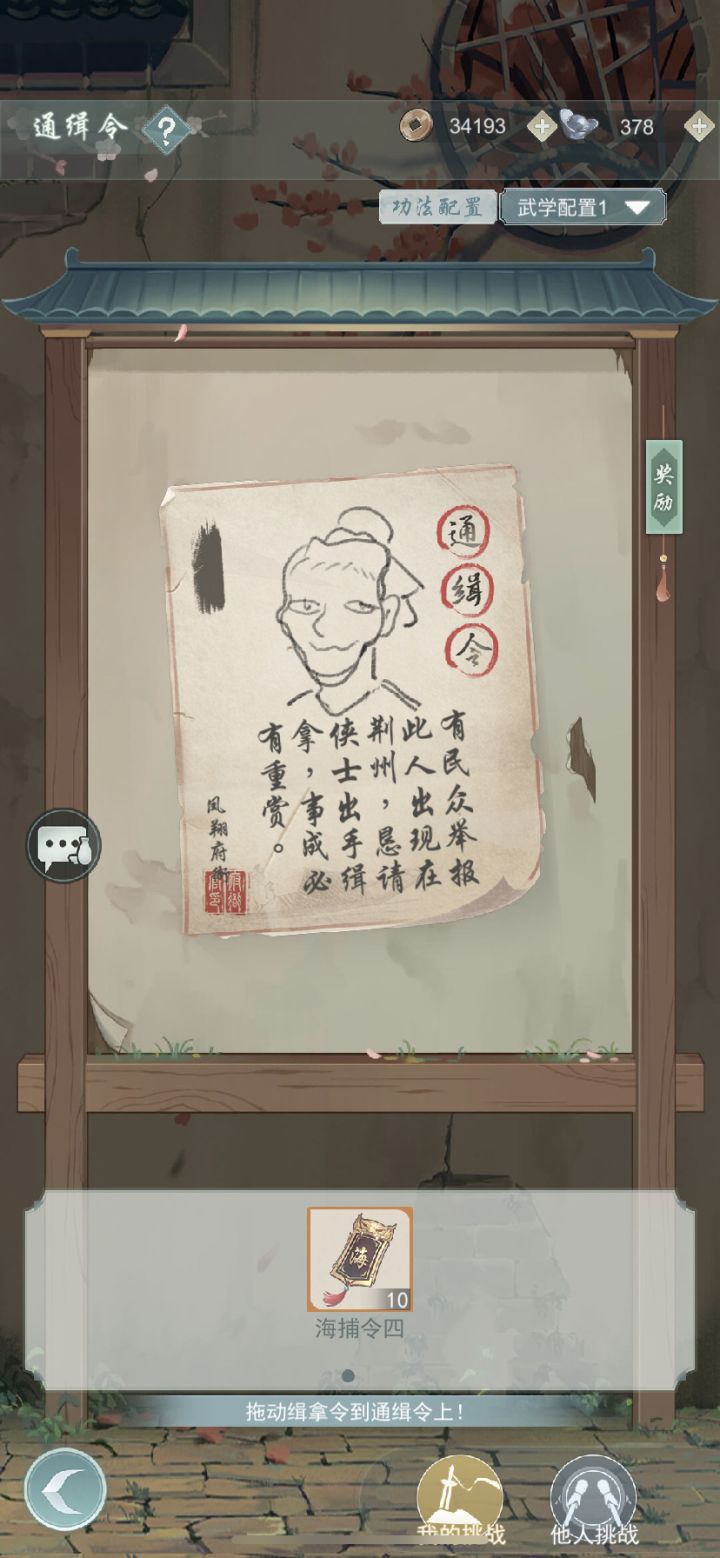 通缉令
?
34193
378
功法配置
武学配置1
奖励
通缉令
有民众举报
此人出现在
荆州，恳请
侠士出手缉
拿，事成必
有重赏。
凤翔府衙
海
10
海捕令四
拖动缉拿令到通缉令上！
我的挑战
他人挑战